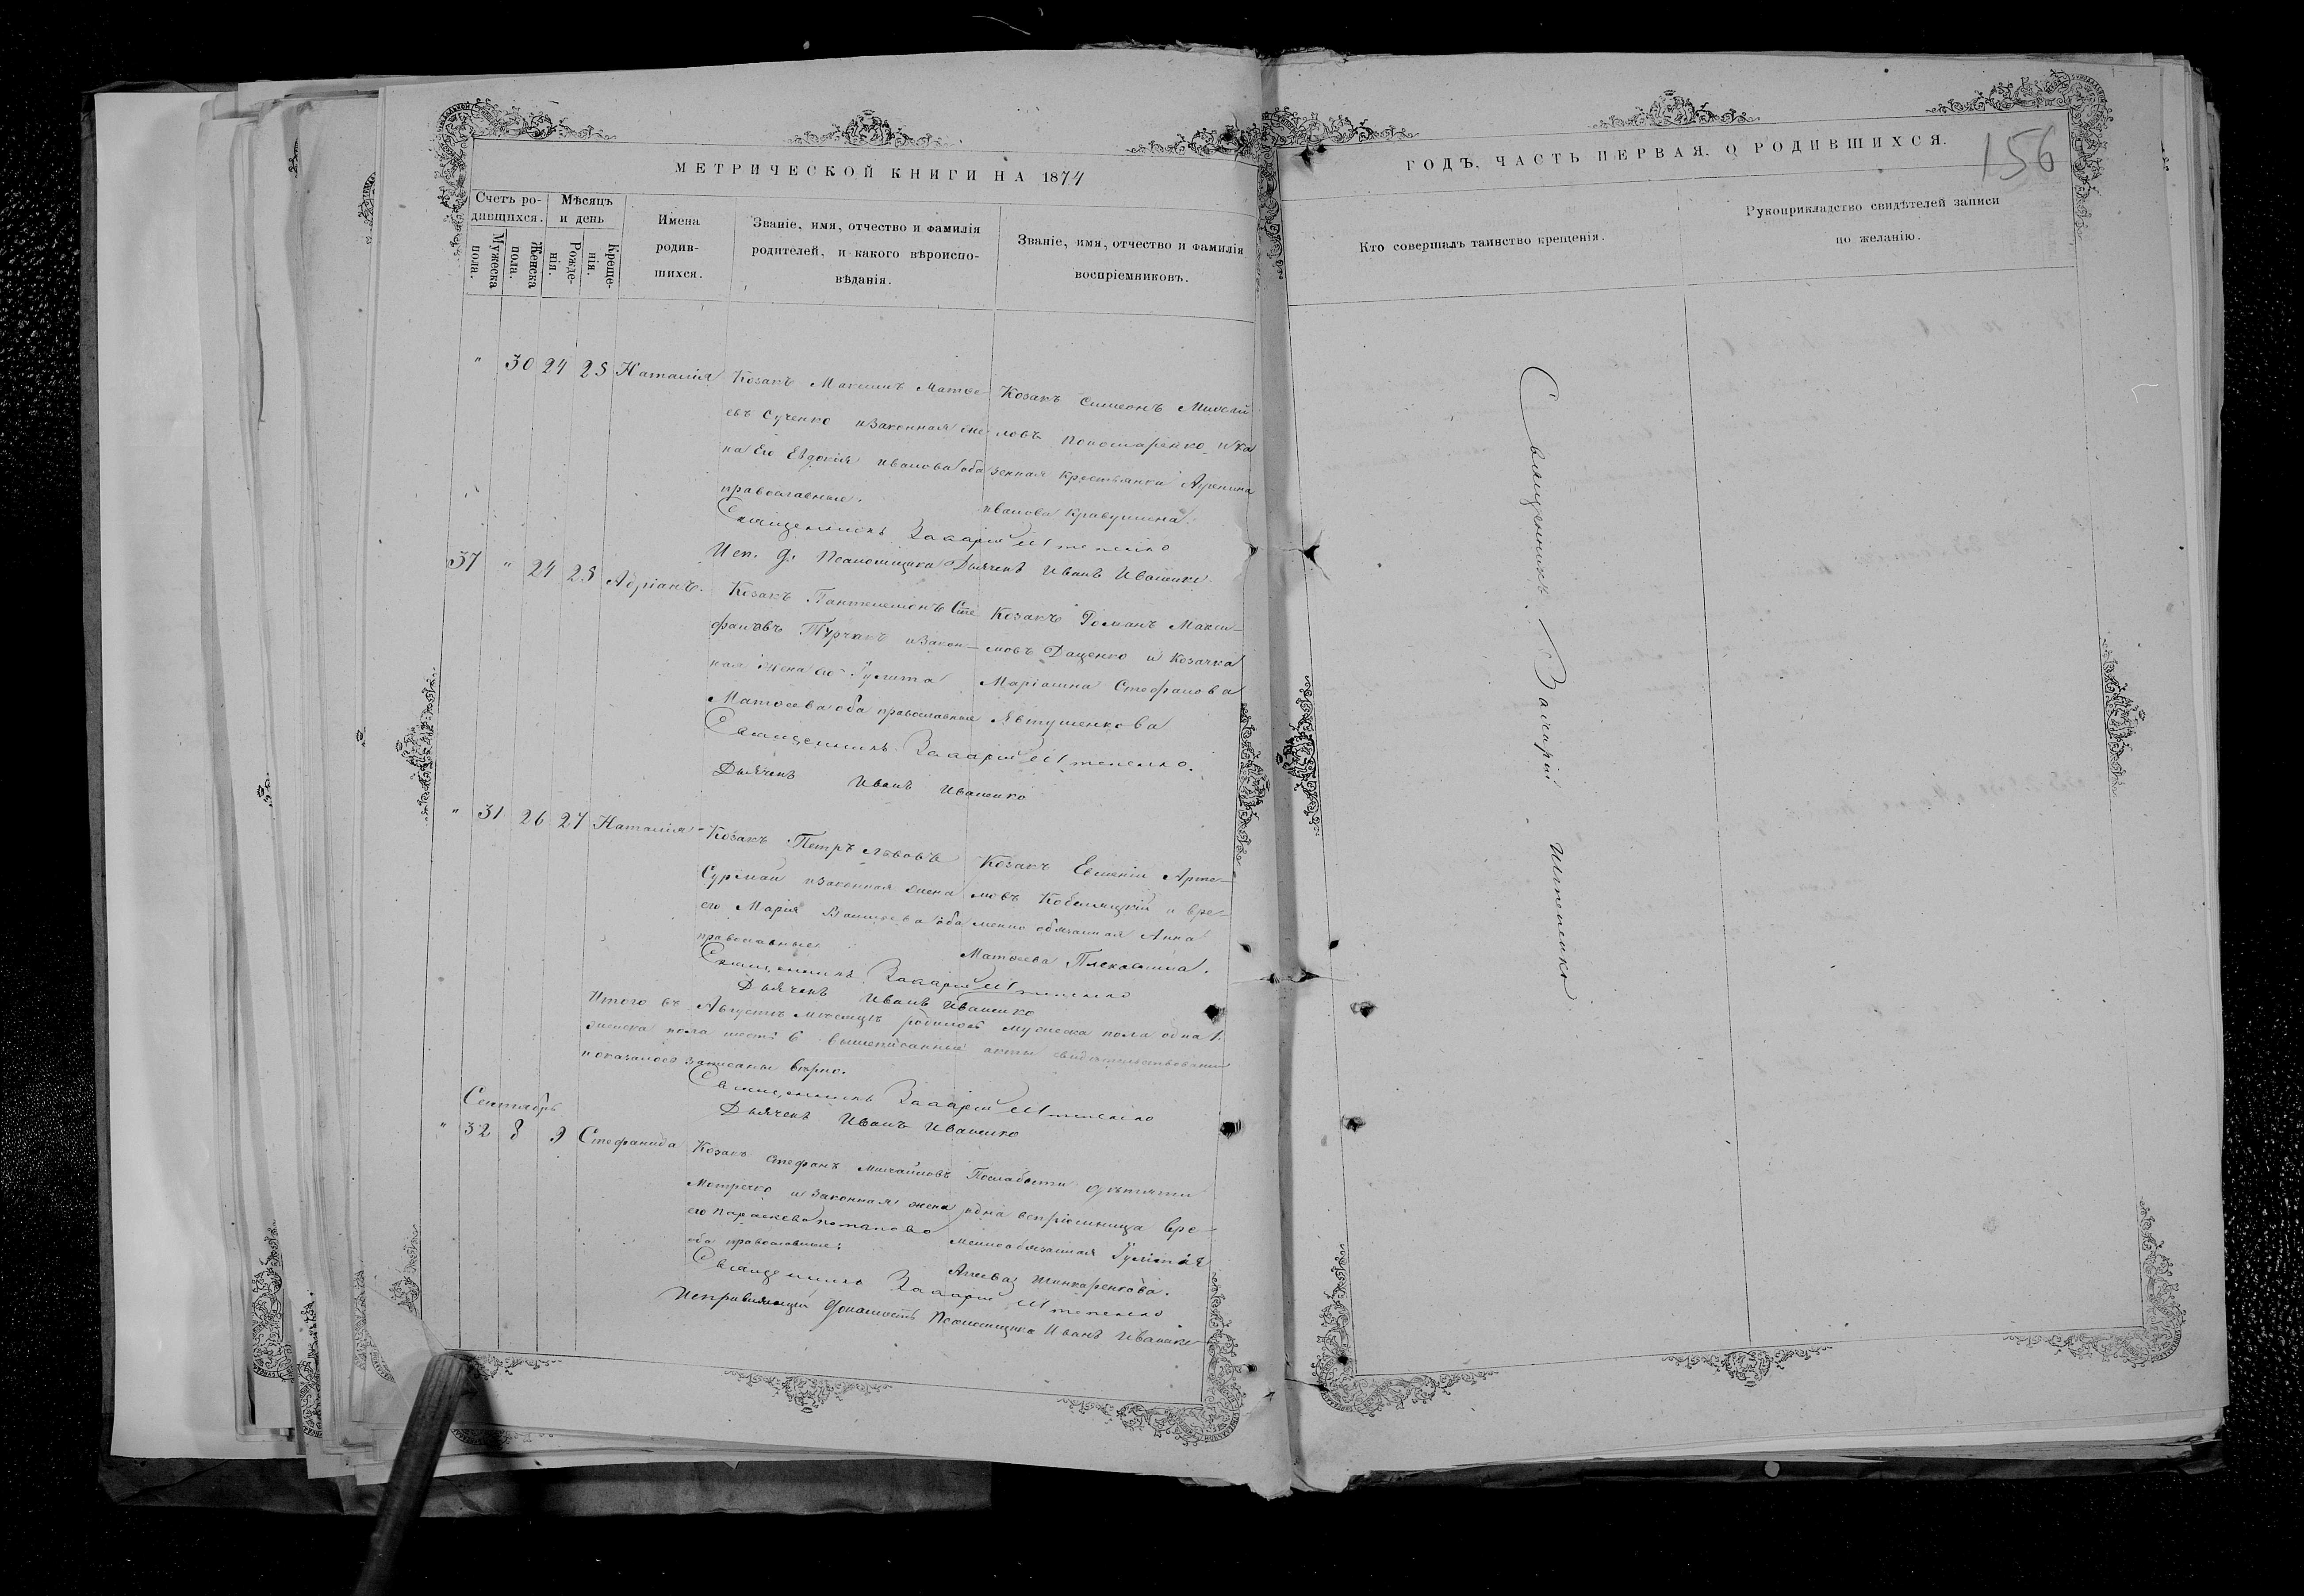 МЕТРИЧЕСКОЙ КНИГИ НА 1874
ГОДЪ, ЧАСТЬ ПЕРВАЯ, О РОДИВШИХСЯ.
156
Счетъ ро-
дившихся.
Мужеска пола.
Женска пола.
Мѣсяцъ
и день
Рожде-
нія.
Креще-
нія.
Имена
родив-
шихся.
Званіе, имя, отчество и фамилія
родителей, и какого вѣроиспо-
вѣданія.
Званіе, имя, отчество и фамилія
воспріемниковъ.
Кто совершалъ таинство крещенія.
Рукоприкладство свидѣтелей записи
по желанію.
" 30 24 25 Наталія
Козакъ Максимъ Матѳе
евъ Сученко изаконная же
на его Евдокія Иванова оба
православные.
Козакъ Симеонъ Михай
ловъ Пономаренко и Ка
зенная крестьянка Агрипина
Иванова Кравушина.
Священникъ Захарій Иттенко
Исп. д. Псаломщика Дьячекъ Иванъ Иваненко.
37 " 24 25 Адріанъ.
Козакъ Пантелеімонъ Сте
фановъ Турчакъ изакон-
ная жена его Іулита
Матѳеева оба православные
Козакъ Романъ Макси-
мовъ Даценко и Козачка
Маріамна Стефанова
Явтушенкова
Священникъ Захарій
Дьячекъ Иванъ Иваненко
" 31 26 27 Наталія
Козакъ Петръ Львовъ
изаконная жена
его Марія оба
православные.
Козакъ Евменій Арте-
мовъ Кобыляцкій и вре-
менно обязанная Анна
Матѳеева
Священникъ Захарій
Дьячекъ Иванъ Иваненко
Итого въ Августѣ мѣсяцѣ родилось мужеска пола одна 1.
женска пола шесть 6 вышеписанные акты свидѣтельствованы
и оказалось записаны вѣрно.
Священникъ Захарій
Дьячекъ Иванъ Иваненко
Сентябрь
" 32 8 9 Стефанида
Козакъ Стефанъ Михайловъ
Мотречко и законная жена
его Параскева Потапова
оба православные.
Послабости дѣтяти
одна воспріемница вре-
меннообязанная Іулитта
Шинкаренкова.
Священникъ Захарій
Исправляющій должность Псаломщика Иванъ Иваненко
Священникъ Захарій